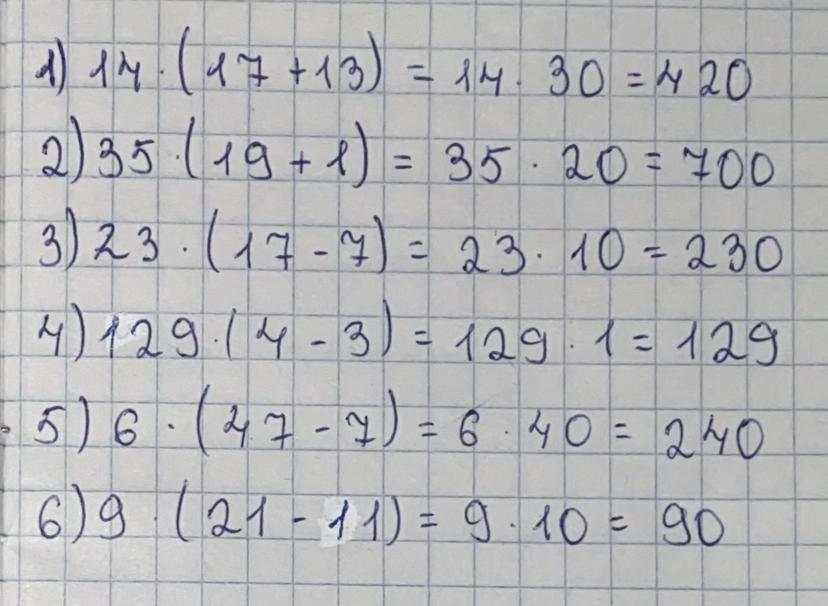 1) 14 · (17 + 13) = 14 · 30 = 420
2) 35 · (19 + 1) = 35 · 20 = 700
3) 23 · (17 - 7) = 23 · 10 = 230
4) 129 · (4 - 3) = 129 · 1 = 129
5) 6 · (47 - 7) = 6 · 40 = 240
6) 9 · (21 - 11) = 9 · 10 = 90